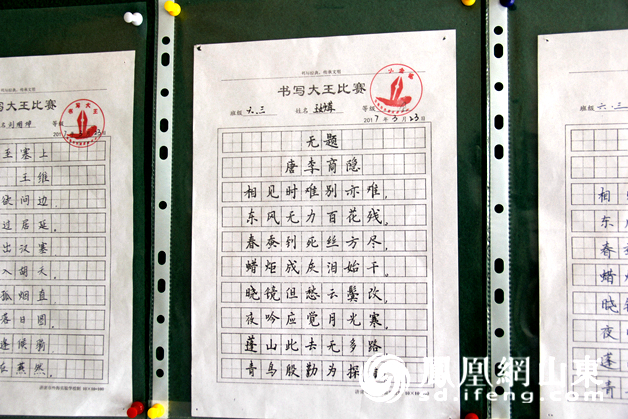 书写大王比赛
等级
2017
至塞上
王维
欲问边,
过居延,
出汉塞
入胡天,
孤烟直
落日圆
逢候
燕然,
书写大王比赛
班级 六.三 姓名 等级
2017年3月23日
无题
唐李商隐
相见时难别亦难,
东风无力百花残,
春蚕到死丝方尽
蜡炬成灰泪始干,
晓镜但愁云鬓改,
夜吟应觉月光寒,
蓬山此去无多路
青鸟殷勤为探看
班级 六.
相见
东风
春
蜡
晓镜
夜
蓬
青
凤凰網山東